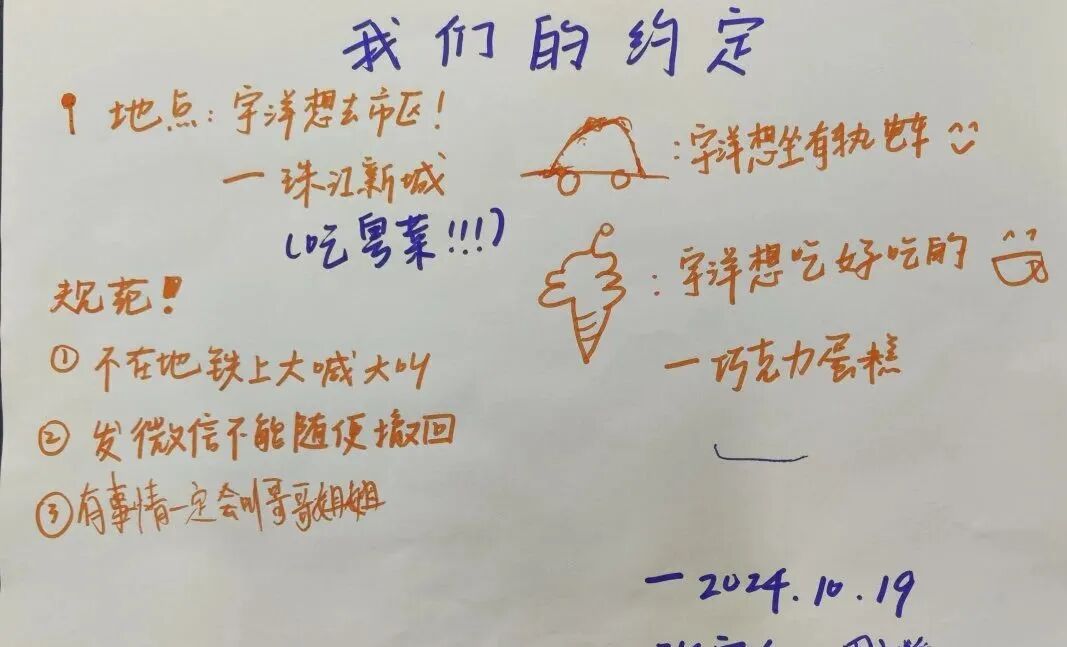 我们的约定
地点：宇洋想去市区！
一珠江新城
（吃粤菜!!!）
：宇洋想坐有轨电车
：宇洋想吃好吃的
一巧克力蛋糕
规范！
①不在地铁上大喊大叫
②发微信不能随便撤回
③有事情一定会叫哥哥姐姐
一2024.10.19